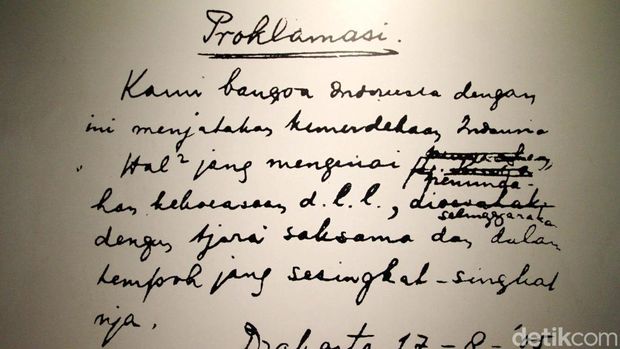 Proklamasi.
Kami bangsa Indonesia dengan
ini menjatakan kemerdekaan Indonesia
Hal² jang mengenai
peminda-
han kekoeasaan d.l.l.,
diselenggarakan
dengan tjara saksama dan dalam
tempoh jang sesingkat-singkat
nja.
Djakarta 17 - 8 - '05
detikcom